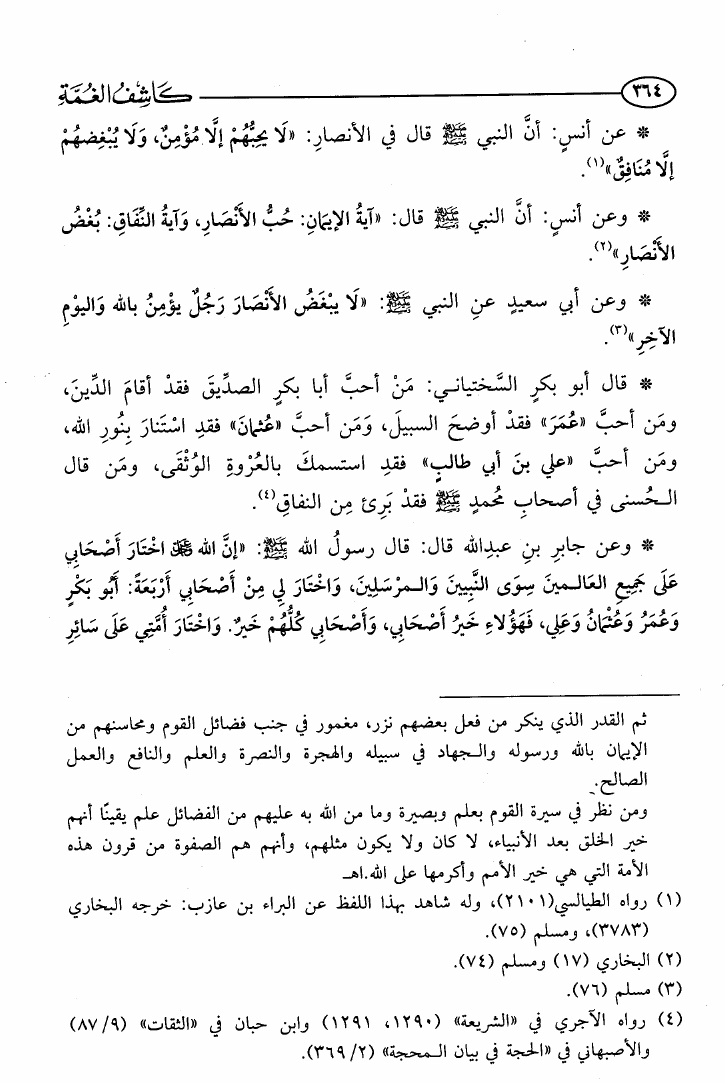 ٣٦٤
كَاشِفُ الغُمَّةِ
* عن أنسٍ: أنَّ النبي ﷺ قال في الأنصارِ: «لَا يحبُّهُمْ إلَّا مُؤْمِنٌ، وَلَا يُبْغِضهُمْ
إلَّا مُنَافِقٌ»(١).
* وعن أنسٍ: أنَّ النبي ﷺ قال: «آيةُ الإيمَانِ: حُبُّ الأَنْصَارِ، وَآيةُ النِّفَاقِ: بُغْضُ
الأَنْصَارِ»(٢).
* وعن أبي سعيدٍ عنِ النبي ﷺ: «لَا يبْغَضُ الأَنْصَارَ رَجُلٌ يؤْمِنُ بالله وَاليوْمِ
الآخِرِ»(٣).
* قال أبو بكرٍ السَّختياني: مَنْ أحبَّ أبا بكرٍ الصدِّيقَ فقدْ أقامَ الدِّينَ،
ومَن أحبَّ «عُمَرَ» فقدْ أوضحَ السبيلَ، وَمَن أحبَّ «عُثمانَ» فقدِ اسْتنارَ بِنُورِ الله،
ومَن أحبَّ «علي بنَ أبي طالبٍ» فقدِ استسمكَ بالعُرْوةِ الوُثْقَى، ومَن قال
الحُسنى في أصحابِ مُحمدٍ ﷺ فقدْ بَرِئ مِن النفاقِ(٤).
* وعن جابرِ بنِ عبدِالله قال: قال رسولُ الله ﷺ: «إنَّ الله ﷻ اخْتَارَ أَصْحَابي
عَلَى جَمِيعِ العَالَمينَ سِوَى النَّبِيينَ وَالمرْسَلِينَ، وَاخْتَارَ لِي مِنْ أَصْحَابي أَرْبَعَةً: أَبُو بَكْرٍ
وَعُمَرُ وَعُثْمَانُ وَعَلِي، فَهَؤُلاءِ خَيرُ أَصْحَابي، وَأَصْحَابي كُلُّهُمْ خَيرٌ. وَاخْتَارَ أُمَّتِي عَلَى سَائِرِ
ثم القدر الذي ينكر من فعل بعضهم نزر، مغمور في جنب فضائل القوم ومحاسنهم من
الإيمان بالله ورسوله والجهاد في سبيله والهجرة والنصرة والعلم والنافع والعمل
الصالح.
ومن نظر في سيرة القوم بعلم وبصيرة وما من الله به عليهم من الفضائل علم يقينًا أنهم
خير الخلق بعد الأنبياء، لا كان ولا يكون مثلهم، وأنهم هم الصفوة من قرون هذه
الأمة التي هي خير الأمم وأكرمها على الله.اهـ
(١) رواه الطيالسي(٢١٠١)، وله شاهد بهذا اللفظ عن البراء بن عازب: خرجه البخاري
(٣٧٨٣)، ومسلم (٧٥).
(٢) البخاري (١٧) ومسلم (٧٤).
(٣) مسلم (٧٦).
(٤) رواه الآجري في «الشريعة» (١٢٩٠، ١٢٩١) وابن حبان في «الثقات» (٨٧/٩)
والأصبهاني في «الحجة في بيان المحجة» (٣٦٩/٢).